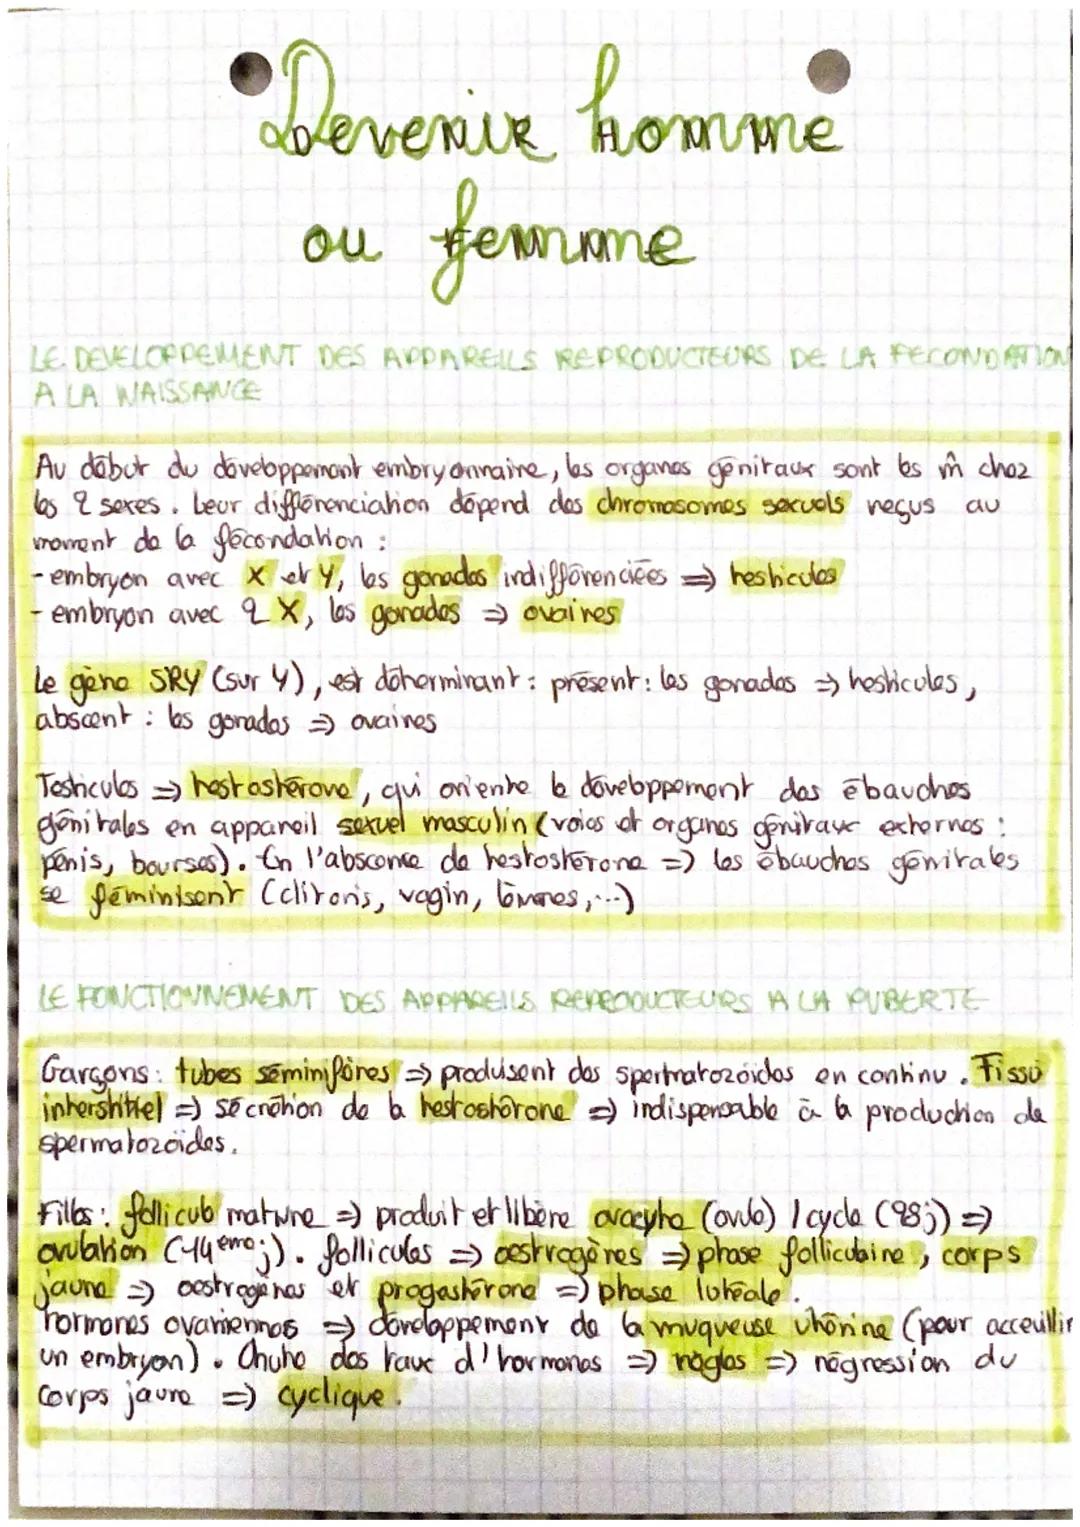 Devenir homme
ou femme
LE DEVELOPPEMENT DES APPAREILS REPRODUCTEURS DE LA FECONDATION
A LA NAISSANCE
Au début du développement embryonnaire, les organes génitaux sont les m̂ chez
les 2 sexes. Leur différenciation dépend des chromosomes sexuels reçus au
moment de la fécondation :
- embryon avec X et Y, les gonades indifférenciées => testicules
- embryon avec 2 X, les gonades => ovaires
Le gène SRY (sur Y), est déterminant : présent : les gonades => testicules,
abscent : les gonades => ovaires
Testicules => testostérone, qui oriente le développement des ébauches
génitales en appareil sexuel masculin (voies et organes génitaux externes :
pénis, bourses). En l'abscence de testostérone => les ébauches génitales
se féminisent (clitoris, vagin, lèvres,...)
LE FONCTIONNEMENT DES APPAREILS REPRODUCTEURS A LA PUBERTE
Garçons : tubes séminifères => produisent des spermatozoïdes en continu. Tissu
interstitiel => sécrétion de la testostérone => indispensable à la production de
spermatozoïdes.
Filles : follicule mature => produit et libère ovocyte (ovule) / cycle (28j) =>
ovulation (14ème j). follicules => oestrogènes => phase folliculaire, corps
jaune => oestrogènes et progestérone => phase lutéale.
hormones ovariennes => développement de la muqueuse utérine (pour acceuillir
un embryon). Chute des taux d'hormones => règles => régression du
corps jaune => cyclique.